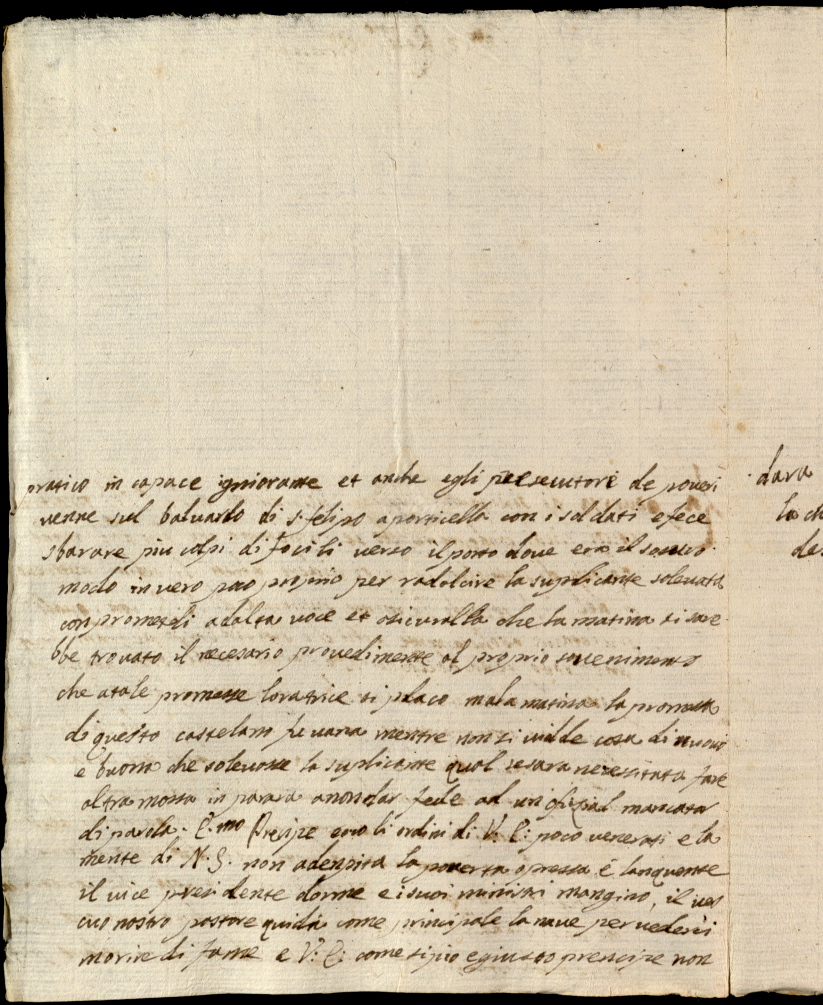 pratico in capace igniorante et anche egli persecutore de poveri
venne sul baluardo di s. felipo aporticella con i soldati e fece
sbarare piu colpi di focili verso il porto dove era il
modo in vero poco proprio per radolcire la suplicante solevata
con prometerli adalta voce et asicuralla che la matina si sare
bbe trovato il necesario provedimente al proprio sovenimento
che atale promesse loratrice si placo mala matina la promessa
di questo castelano fu vana mentre non si vidde cosa di nuovo
e buona che solevasse la suplicante qual sesara necessitata fare
altra mossa in parara anondar fede ad un ofizial mancator
di parola. E.mo Precipe ecco li ordini di V. E: poco venerati e la
mente di N. S. non adenpita la poverta opressa e languente
il vice presidente dorme e i suoi ministri mangino, il ves
covo nostro pastore guida come principale la nave per vederci
morire di fame e V: E: come si pio e giusto prencipe non
dara
la ch
des